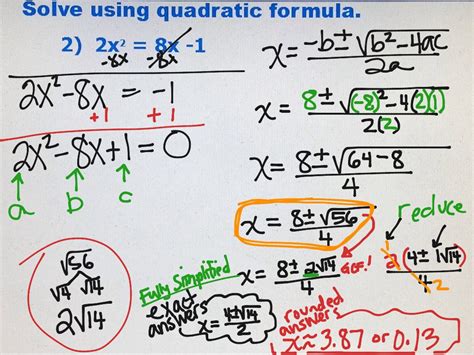 Solve using quadratic formula.
2) 2x² = 8x -1
-8x -8x
2x² -8x = -1
+1 +1
2x² -8x +1 = 0
a b c
x = -b ± √b² -4ac / 2a
x = 8 ± √(-8)² -4(2)(1) / 2(2)
x = 8 ± √64 -8 / 4
x = 8 ± √56 / 4
reduce
√56
√4 √14
2√14
Fully Simplified
exact answers
x = 8 ± 2√14 / 4
GCF!
1
2(4 ± 1√14) / 4
2
x = 4 ± √14 / 2
rounded answers
x ≈ 3.87 or 0.13